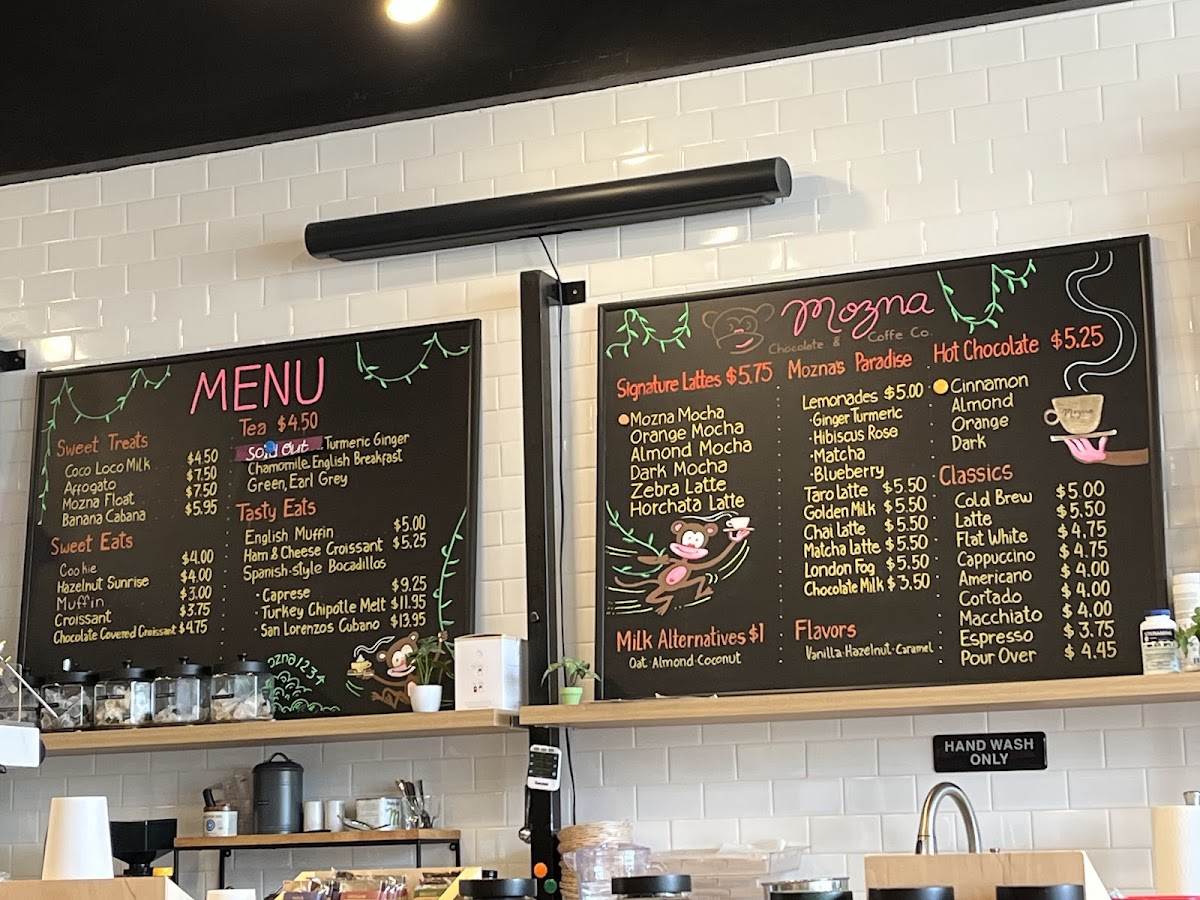 MENU
Tea $4.50
Sold Out Turmeric Ginger
Chamomile, English Breakfast
Green, Earl Grey
Sweet Treats
Coco Loco Milk $4.50
Affogato $7.50
Mozna Float $7.50
Banana Cabana $5.95
Sweet Eats
Cookie $4.00
Hazelnut Sunrise $4.00
Muffin $3.00
Croissant $3.75
Chocolate Covered Croissant $4.75
Tasty Eats
English Muffin $5.00
Ham & Cheese Croissant $5.25
Spanish-style Bocadillos
· Caprese $9.25
· Turkey Chipotle Melt $11.95
· San Lorenzos Cubano $13.95
Mozna
Chocolate & Coffe Co.
Signature Lattes $5.75
Mozna Mocha
Orange Mocha
Almond Mocha
Dark Mocha
Zebra Latte
Horchata Latte
Milk Alternatives $1
Oat · Almond · Coconut
Mozna's Paradise
Lemonades $5.00
· Ginger Turmeric
· Hibiscus Rose
· Matcha
· Blueberry
Taro latte $5.50
Golden Milk $5.50
Chai latte $5.50
Matcha latte $5.50
London Fog $5.50
Chocolate Milk $3.50
Flavors
Vanilla · Hazelnut · Caramel
Hot Chocolate $5.25
Cinnamon
Almond
Orange
Dark
Mozna
Classics
Cold Brew $5.00
Latte $5.50
Flat White $4.75
Cappuccino $4.75
Americano $4.00
Cortado $4.00
Macchiato $4.00
Espresso $3.75
Pour Over $4.45
HAND WASH
ONLY